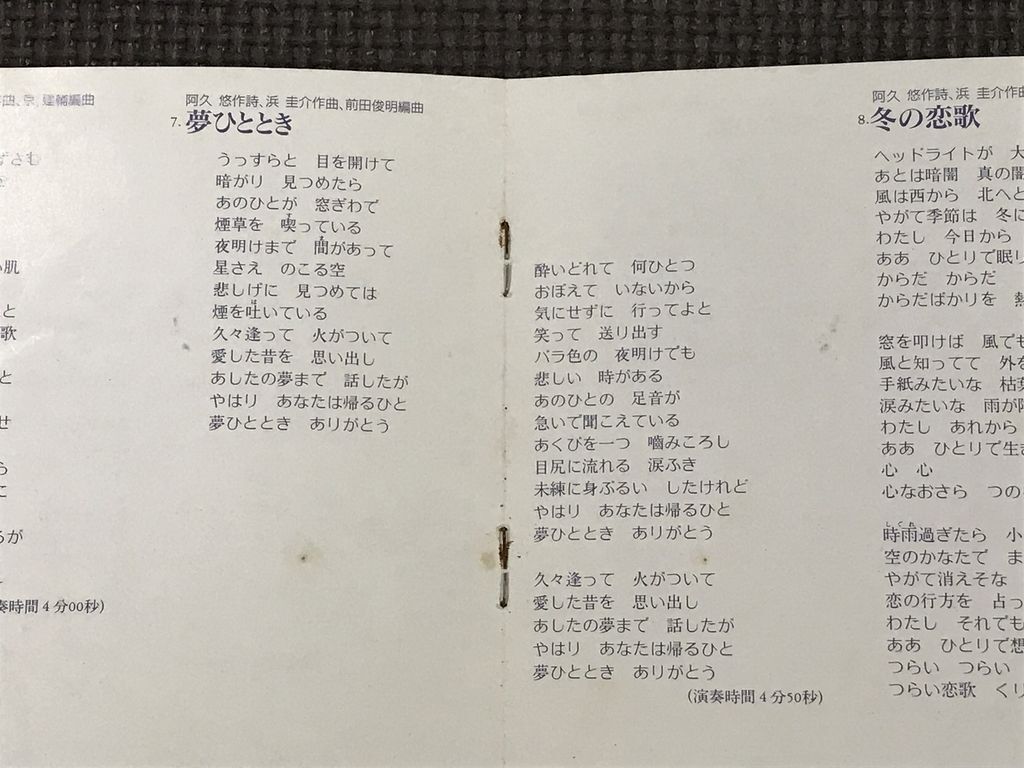 建輔編曲
肌
と
歌
と
せ
ら
に
るが
演奏時間4分00秒)
阿久 悠作詩、浜 圭介作曲、前田俊明編曲
7. 夢ひととき
うっすらと 目を開けて
暗がり 見つめたら
あのひとが 窓ぎわで
煙草を 喫っている
夜明けまで 間があって
星さえ のこる空
悲しげに 見つめては
煙を吐いている
久々逢って 火がついて
愛した昔を 思い出し
あしたの夢まで 話したが
やはり あなたは帰るひと
夢ひととき ありがとう
酔いどれて 何ひとつ
おぼえて いないから
気にせずに 行ってよと
笑って 送り出す
バラ色の 夜明けでも
悲しい 時がある
あのひとの 足音が
急いで聞こえている
あくびを一つ 嚙みころし
目尻に流れる 涙ふき
未練に身ぶるい したけれど
やはり あなたは帰るひと
夢ひととき ありがとう
久々逢って 火がついて
愛した昔を 思い出し
あしたの夢まで 話したが
やはり あなたは帰るひと
夢ひととき ありがとう
(演奏時間4分50秒)
阿久 悠作詩、浜 圭介作曲
8. 冬の恋歌
ヘッドライトが 大
あとは暗闇 真の闇
風は西から 北へと
やがて季節は 冬に
わたし 今日から
ああ ひとりで眠り
からだ からだ
からだばかりを 熱
窓を叩けば 風でも
風と知ってて 外を
手紙みたいな 枯葉
涙みたいな 雨が
わたし あれから
ああ ひとりで生き
心 心
心なおさら つの
時雨過ぎたら 小
空のかなたで ま
やがて消えそな
恋の行方を 占っ
わたし それでも
ああ ひとりで想
つらい つらい
つらい恋歌 くり